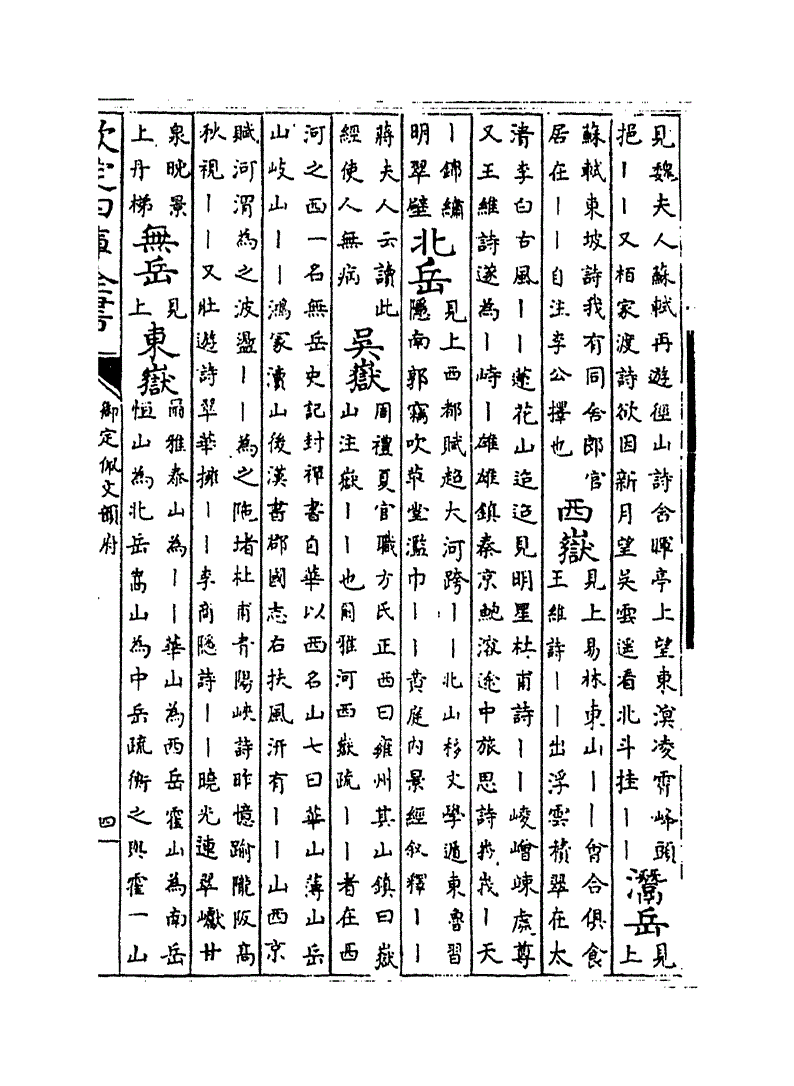 見魏夫人蘇軾再遊徑山詩含暉亭上望東溟凌霄峰頭
挹丨丨又栢家渡詩欲因新月望吳雲遥看北斗挂丨丨
灊岳
見
上
蘇軾東坡詩我有同舍郎官
居在丨丨自注李公擇也
西嶽
見上易林東山丨丨㑹合俱食
王維詩丨丨出浮雲積翠在太
清李白古風丨丨蓮花山迢迢見明星杜甫詩丨丨崚嶒竦處尊
又王維詩遂為丨峙丨雄雄鎮秦京鮑溶途中旅思詩峩峩丨天
丨錦繡
明翠壁
北岳
見上西都賦超大河跨丨丨北山移文學遁東魯習
隱南郭竊吹草堂濫巾丨丨黄庭内景經叙釋丨丨
蔣夫人云讀此
經使人無病
吳嶽
周禮夏官職方氏正西曰雍州其山鎮曰嶽
山注嶽丨丨也爾雅河西嶽疏丨丨者在西
河之西一名無岳史記封禪書自華以西名山七曰華山薄山岳
山岐山丨丨鴻冢瀆山後漢書郡國志右扶風汧有丨丨山西京
賦河渭為之波盪丨丨為之陁堵杜甫青陽峽詩昨憶踰隴阪髙
秋視丨丨又壯遊詩翠華擁丨丨李商隱詩丨丨曉光連翠巘甘
泉晚景
上丹梯
無岳
見
上
東嶽
爾雅泰山為丨丨華山為西岳霍山為南岳
恒山為北岳嵩山為中岳疏衡之與霍一山
欽定四庫全書
御定佩文韻府
四